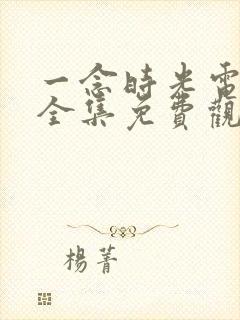 一念時光電
全集免費觀
楊菁